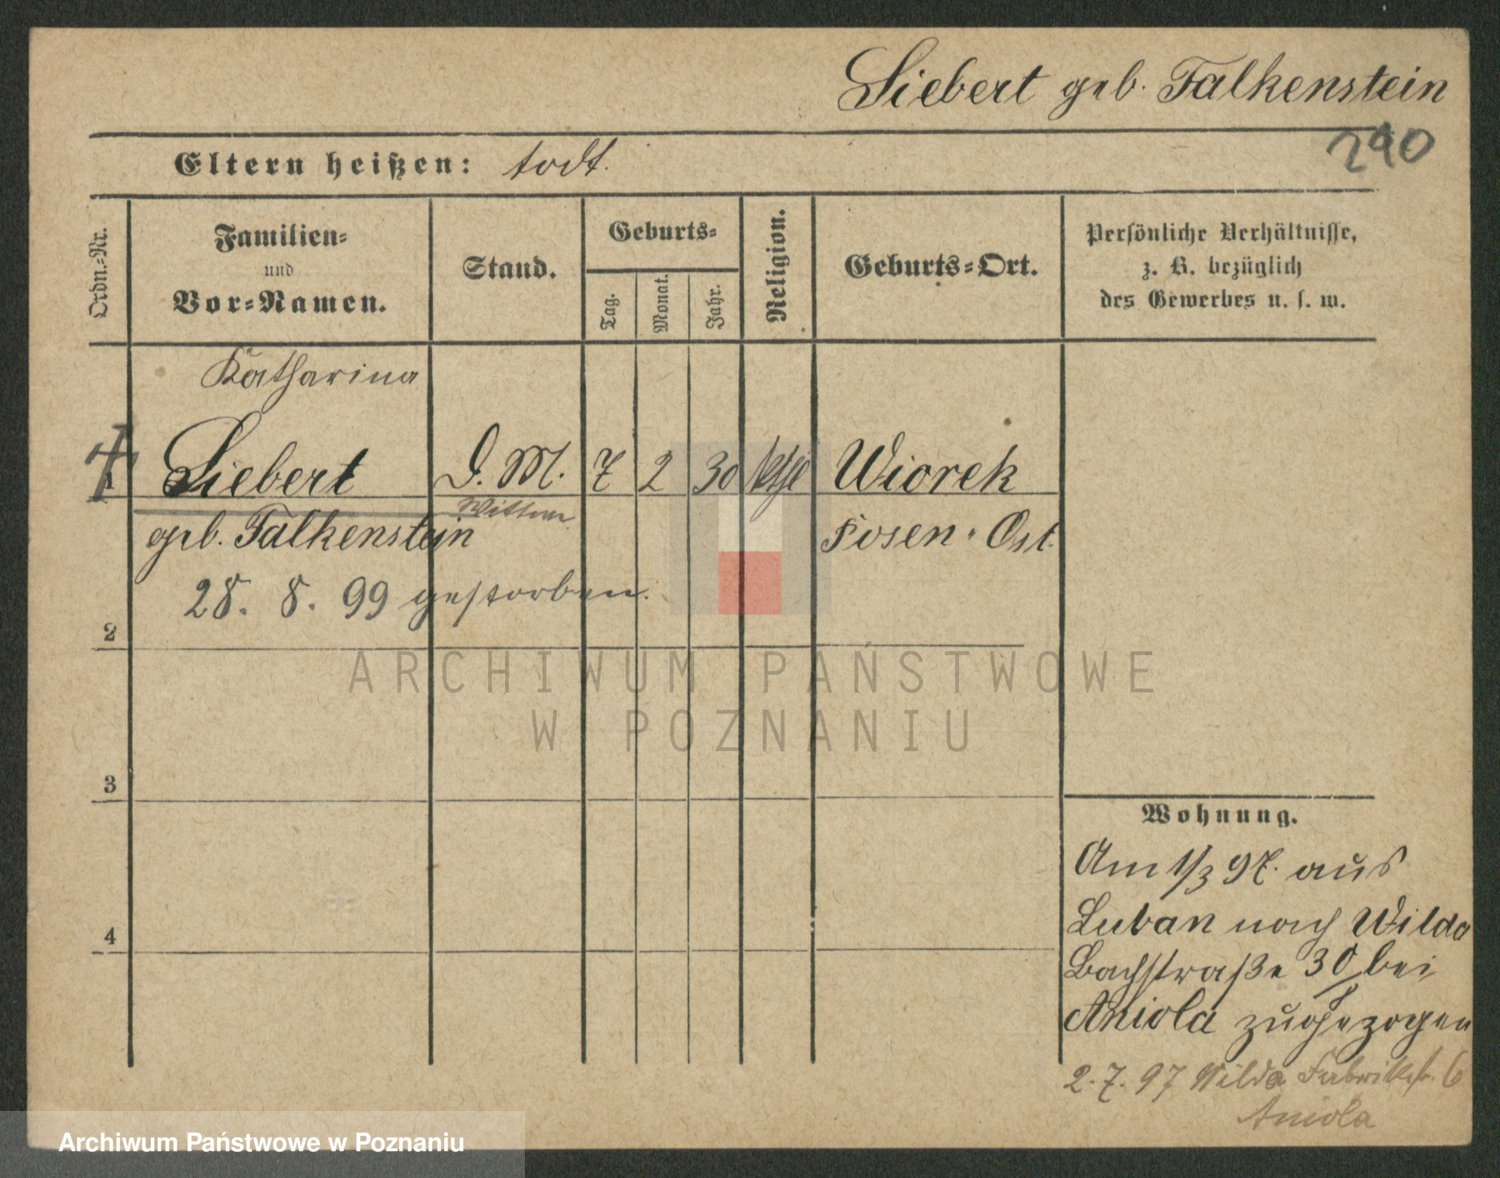 Siebert geb. Falkenstein
290
Eltern heißen: todt.
Ordn.-Nr.
Familien-
und
Vor-Namen.
Stand.
Geburts-
Tag.
Monat.
Jahr.
Religion.
Geburts-Ort.
Persönliche Verhältnisse,
z. B. bezüglich
des Gewerbes u. s. w.
Katharina
Siebert D. M. 7 2 30 kthl Wiorek
Wittwe
geb. Falkenstein Posen. Ost.
28. 8. 99 gestorben.
2
3
4
Wohnung.
Am 1/3 97. aus
Luban nach Wilda
Bachstraße 30 bei
Aniola zugezogen
2.7.97 Wilda Fabrikstr. 6
Aniola
ARCHIWUM PAŃSTWOWE
W POZNANIU
Archiwum Państwowe w Poznaniu